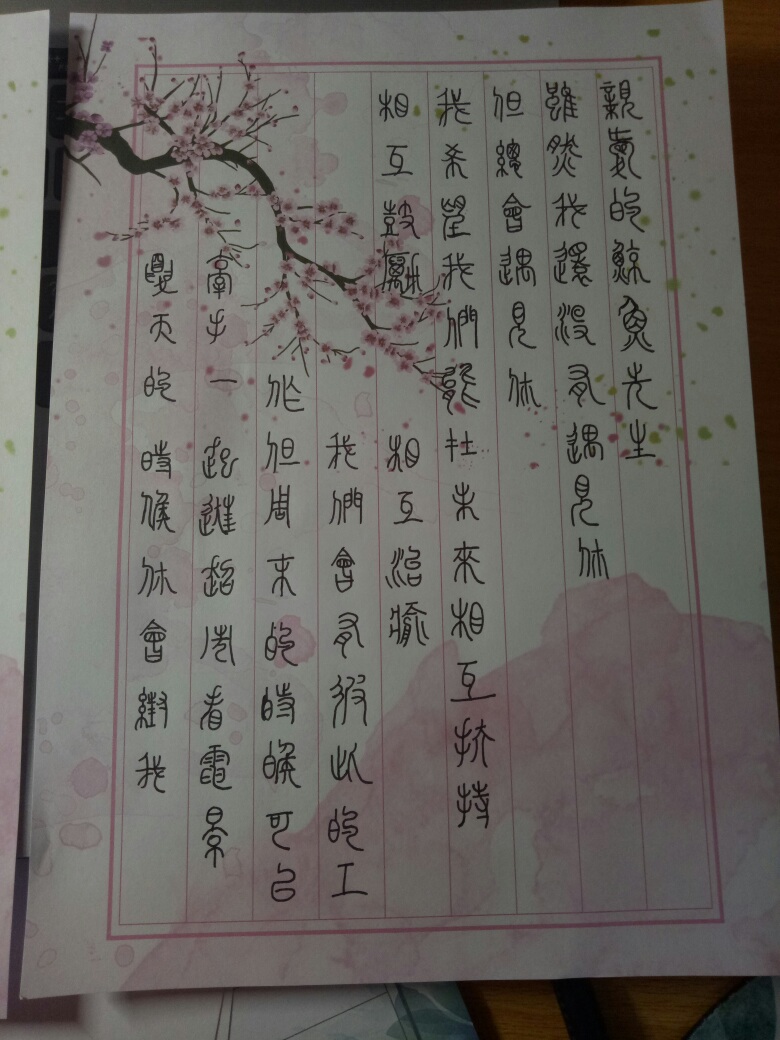 親愛的鯨魚先生
雖然我還沒有遇見你
但總會遇見你
我希望我們能在未來相互扶持
相互鼓勵 相互治癒
我們會有彼此的工
作但周末的時候可以
牽手一起逛超市看電影
夏天的時候你會對我